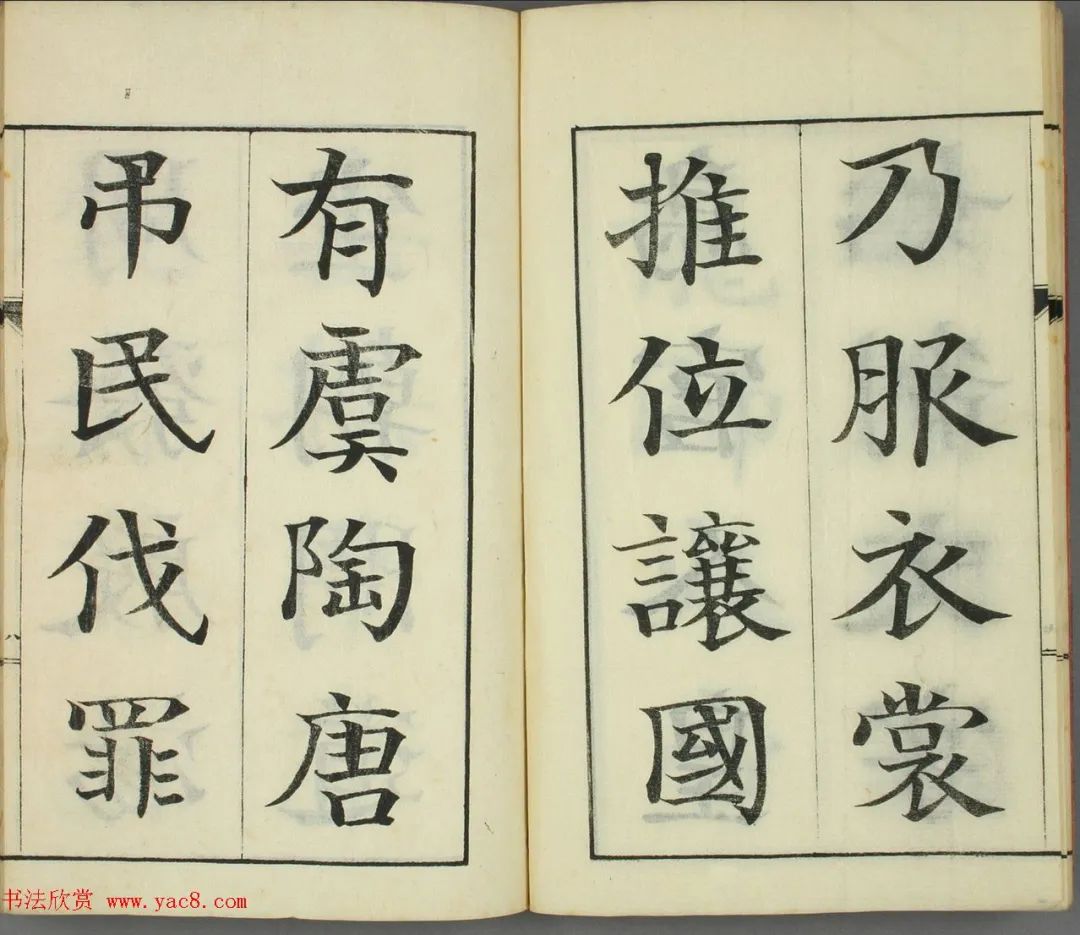 乃服衣裳
推位讓國
有虞陶唐
吊民伐罪
八
书法欣赏 www.yac8.com